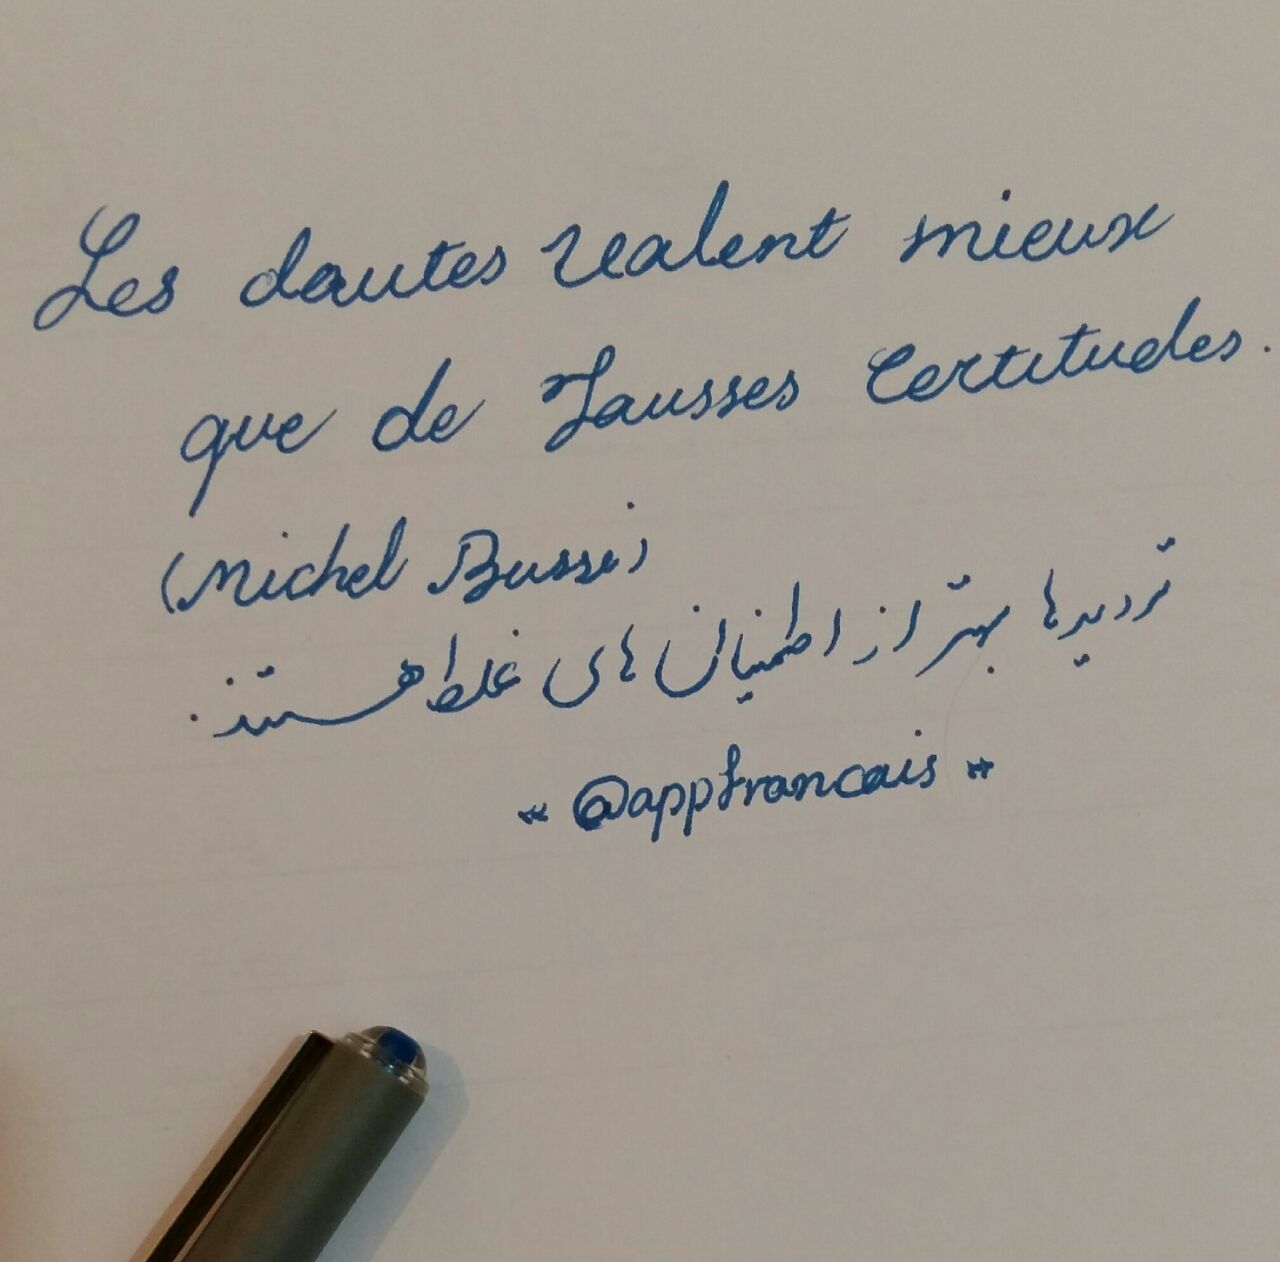 Les doutes valent mieux
que de fausses certitudes.
(Michel Bussi)
تردیدها بهتر از اطمینان های غلط هستند.
"@appfrancais"